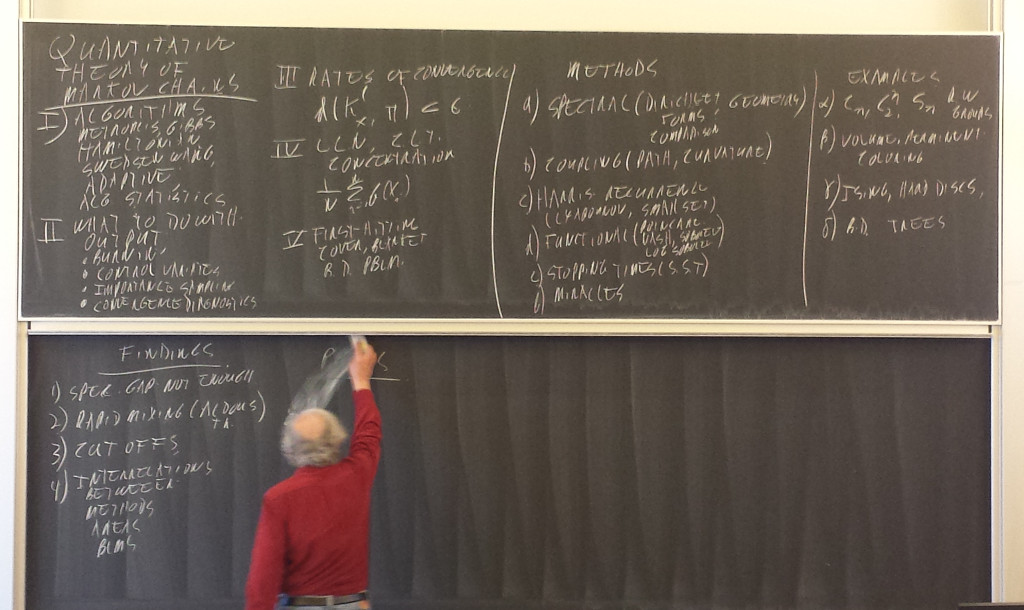 QUANTITATIVE
THEORY OF
MARKOV CHAINS
I) ALGORITHMS
METROPOLIS, GIBBS
HAMILTONIAN
SWENDSEN WANG,
ADAPTIVE,
ALG STATISTICS
II WHAT TO DO WITH
OUTPUT.
• BURN IN
• CONTROL VARIATES
• IMPORTANCE SAMPLING
• CONVERGENCE DIAGNOSTICS
III RATES OF CONVERGENCE
d(K_x^l, π) < ε
IV LLN, CLT.
CONCENTRATION
1/N Σ f(X_i)
V FIRST HITTING
COVER, BLANKET
B.D. PBLM.
METHODS
a) SPECTRAL (DIRICHLET GEOMETRY)
FORMS,
COMPARISON
b) COUPLING (PATH, CURVATURE)
c) HARRIS RECURRENCE
(LYAPUNOV, SMALL SET)
d) FUNCTIONAL (POINCARE
NASH, SOBOLEV
LOG SOBOLEV)
e) STOPPING TIMES (S.S.T)
f) MIRACLES
EXAMPLES
α) C_n, C_2^n, S_n R.W
GROUPS
β) VOLUME, PERMANENT.
COLORING
γ) ISING, HARD DISCS,
δ) B.D. TREES
FINDINGS
1) SPEC. GAP NOT ENOUGH
2) RAPID MIXING (ALDOUS)
3) CUT OFFS
4) INTERRELATIONS
BETWEEN
METHODS
AREAS